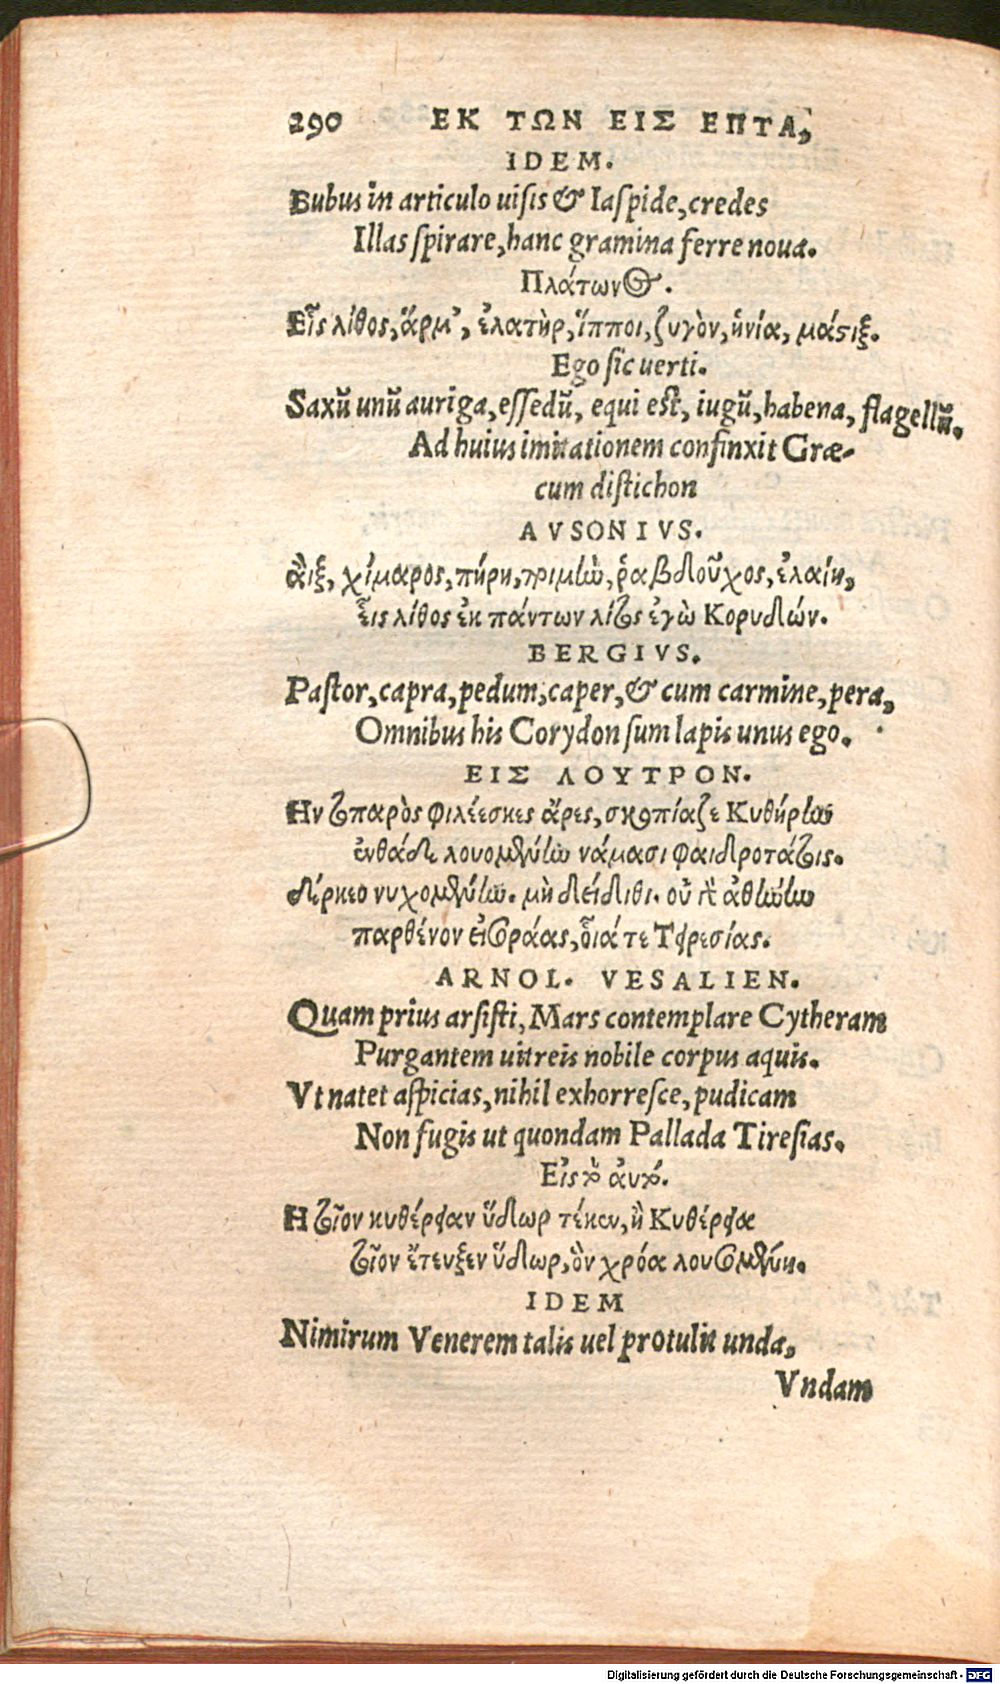 290 ΕΚ ΤΩΝ ΕΙΣ ΕΠΤΑ,
IDEM.
Bubus in articulo uisis & Iaſpide, credes
Illas ſpirare, hanc gramina ferre noua.
Πλάτων⊙.
Εἷς λίθος, ἅρμ', ἐλατὴρ, ἵπποι, ζυγὸν, ἡνία, μάϛιξ.
Ego ſic uerti.
Saxũ unũ auriga, eſſedũ, equi eſt, iugũ, habena, flagellũ.
Ad huius imitationem confinxit Græ-
cum diſtichon
AVSONIVS.
ἂιξ, χίμαρος, πήρη, ποιμὼ, ῥαβδοῦχος, ἐλαίη,
εἷς λίθος ἐκ πάντων λίτος ἐγὼ Κορυδών.
BERGIVS.
Paſtor, capra, pedum, caper, & cum carmine, pera,
Omnibus his Corydon ſum lapis unus ego.
ΕΙΣ ΛΟΥΤΡΟΝ.
Ην τοπαρὸς φιλέεσκες ἄρες, σκοπίαζε Κυθήρην
ἐνθάδε λουομένην νάμασι φαιδροτάτοις.
δέρκεο νυχομένην. μὴ δείδιθι. οὐ γὸ ἀθήνην
παρθένον εἰσοράας, οἷά τε Τειρεσίας.
ARNOL. VESALIEN.
Quam prius arſiſti, Mars contemplare Cytheram
Purgantem uitreis nobile corpus aquis.
Vt natet aſpicias, nihil exhorreſce, pudicam
Non fugis ut quondam Pallada Tireſias.
Εἰς τὸ ἀυτό.
Η τοῖον κυθέρειαν ὕδωρ τέκεν, ἢ Κυθέρεια
τοῖον ἔτευξεν ὕδωρ, ὃν χρόα λουσομένη.
IDEM
Nimirum Venerem talis uel protulit unda,
Vndam
Digitalisierung gefördert durch die Deutsche Forschungsgemeinschaft - DFG